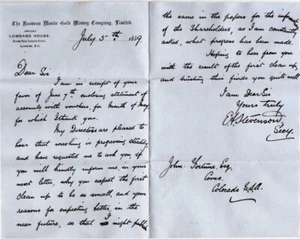 The Ravens Monte Gold Mining Company, Limited.
Lombard House,
July 5th 1889
Dear Sir
I am in receipt of your
favor of June 7th enclosing statement of
accounts with vouchers for Month of May
for which I thank you.
My Directors are pleased to
hear that washing is progressing steadily
and have requested me to ask you if
you will kindly inform me in your
next letter, why you expect the first
clean up to be so small, and your
reasons for expecting better, in the
near future, so that I might publish
the same in the papers for the information
of the Shareholders, as I am constantly
asked, what progress has been made.
Hoping to hear from you
with the result of the first clean up,
and trusting that finds you quite well
I am Dear Sir
Yours truly
E. H. Stevenson
Secy.
John Fortune Esq
Como
Colorado U.S.A.